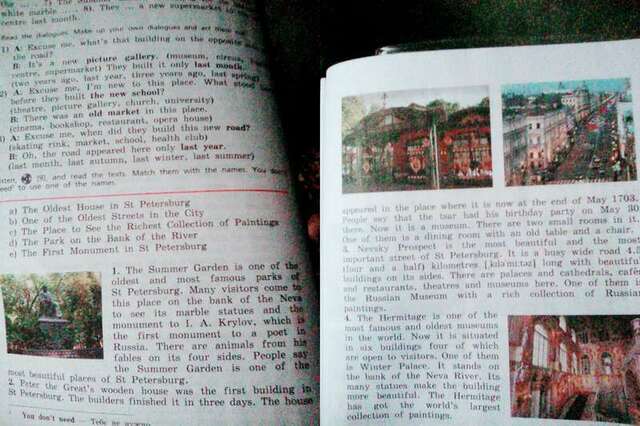 white marble ..... 8). They — a new supermarket
centre last month.
Read the dialogues. Make up your own dialogues and act
1) A: Excuse me, what's that building on the opposite
the road?
B: It's a new picture gallery. (museum, circus,
centre, supermarket) They built it only last month.
(two years ago, last year, three years ago, last spring)
2) A: Excuse me, I'm new to this place. What stood
before they built the new school?
(theatre, picture gallery, church, university)
B: There was an old market in this place.
(cinema, bookshop, restaurant, opera house)
A: Excuse me, when did they build this new road?
(skating rink, market, school, health club)
B: Oh, the road appeared here only last year.
(last month, last autumn, last winter, last summer)
and read the texts. Match them with the names. You don't
need to use one of the names.
a) The Oldest House in St Petersburg
b) One of the Oldest Streets in the City
c) The Place to See the Richest Collection of Paintings
d) The Park on the Bank of the River
e) The First Monument in St Petersburg
1. The Summer Garden is one of the
oldest and most famous parks of
St Petersburg. Many visitors come to
this place on the bank of the Neva
to see its marble statues and the
monument to I. A. Krylov, which is
the first monument to a poet in
Russia. There are animals from his
fables on its four sides. People say
the Summer Garden is one of the
most beautiful places of St Petersburg.
2. Peter the Great's wooden house was the first building in
St Petersburg. The builders finished it in three days. The house
You don't need — Тебе не нужно
appeared in the place where it is now at the end of May 1703.
People say that the tsar had his birthday party on May 30
there. Now it is a museum. There are two small rooms in it.
One of them is a dining room with an old table and a chair.
3. Nevsky Prospect is the most beautiful and the most
important street of St Petersburg. It is a busy wide road 4.5
(four and a half) kilometres long with beautiful
buildings on the sides. There are palaces and cathedrals, cafés
and restaurants, theatres and museums here. One of them is
the Russian Museum with a rich collection of Russian
paintings.
4. The Hermitage is one of the
most famous and oldest museums
in the world. Now it is situated
in six buildings four of which
are open to visitors. One of them
is Winter Palace. It stands on
the bank of the Neva River. Its
many statues make the building
more beautiful. The Hermitage
has got the world's largest
collection of paintings.